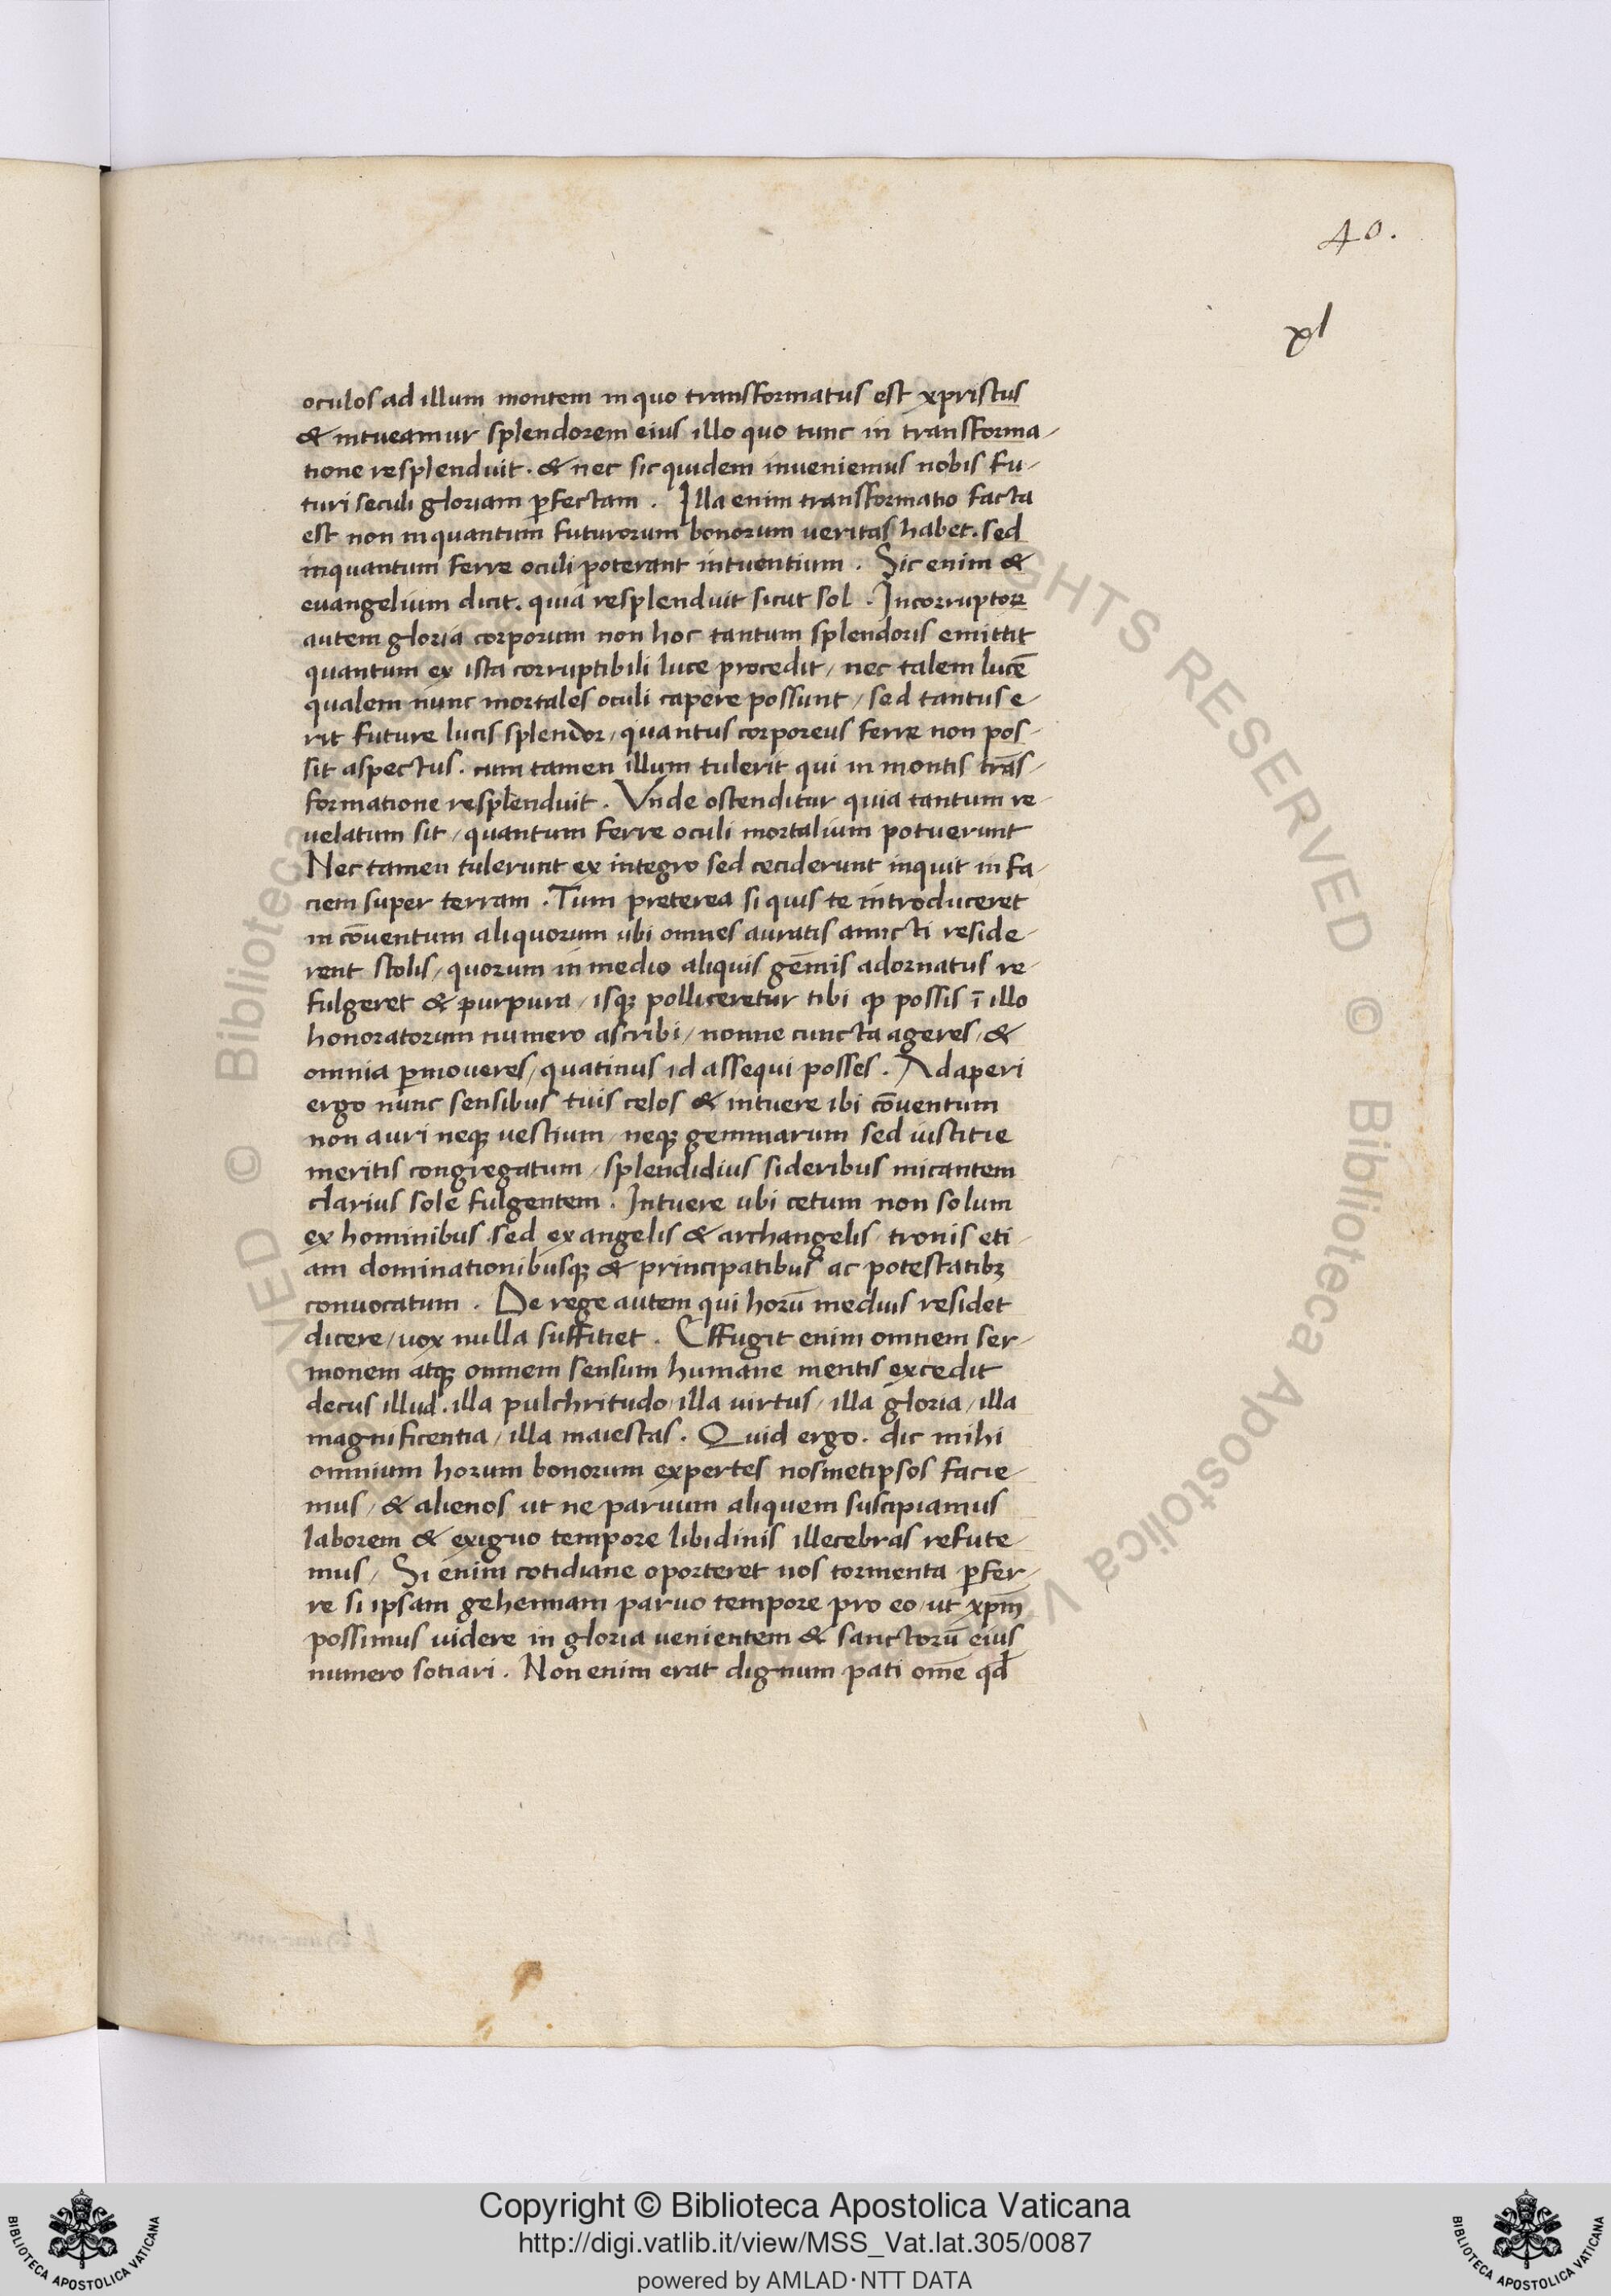 40.
xl
oculos ad illum montem in quo transformatus est xpristus
& intueamur splendorem eius illo quo tunc in transforma-
tione resplenduit. & nec sic quidem inueniemus nobis fu-
turi seculi gloriam ꝑfectam. Illa enim transformatio facta
est non inquantum futurorum bonorum ueritas habet. sed
inquantum ferre oculi poterant intuentium. Sic enim &
euangelium dicit. quia resplenduit sicut sol. Incorruptoꝝ
autem gloria corporum non hoc tantum splendoris emittit
quantum ex ista corruptibili luce procedit/ nec talem lucē
qualem nunc mortales oculi capere possunt/ sed tantus e-
rit future lucis splendor/ quantus corporeus ferre non pos-
sit aspectus. cum tamen illum tulerit qui in montis trās-
formatione resplenduit. Vnde ostenditur quia tantum re-
uelatum sit/ quantum ferre oculi mortalium potuerunt
Nec tamen tulerunt ex integro sed ceciderunt inquit in fa-
ciem super terram. Tum preterea si quis te introduceret
in cōuentum aliquorum ubi omnes auratis amicti reside-
rent stolis/ quorum in medio aliquis gēmis adornatus re-
fulgeret & purpura/ isqꝫ polliceretur tibi ꝙ possis ī illo
honoratorum numero ascribi/ nonne cuncta ageres/ &
omnia ꝑmoueres/ quatinus id assequi posses. Adaperi
ergo nunc sensibus tuis celos & intuere ibi cōuentum
non auri neqꝫ uestium/ neqꝫ gemmarum sed iustitie
meritis congregatum/ splendidius sideribus micantem
clarius sole fulgentem. Intuere ubi cetum non solum
ex hominibus sed ex angelis & archangelis/ tronis eti-
am dominationibusqꝫ & principatibus ac potestatibꝫ
conuocatum. De rege autem qui horū medius residet
dicere/ uox nulla suffitiet. Effugit enim omnem ser-
monem atqꝫ omnem sensum humane mentis excedit
decus illud. illa pulchritudo/ illa uirtus/ illa gloria/ illa
magnificentia/ illa maiestas. Quid ergo. dic mihi
omnium horum bonorum expertes nosmetipsos facie-
mus/ & alienos ut ne paruum aliquem suscipiamus
laborem & exiguo tempore libidinis illecebras refute-
mus/ Si enim cotidiane oporteret nos tormenta ꝑfer-
re si ipsam gehennam paruo tempore pro eo/ ut xpm̄
possimus uidere in gloria uenientem & sanctorū eius
numero sotiari. Non enim erat dignum pati om̄e qđ
© Biblioteca Apostolica Vaticana
RIGHTS RESERVED
Copyright © Biblioteca Apostolica Vaticana
http://digi.vatlib.it/view/MSS_Vat.lat.305/0087
powered by AMLAD·NTT DATA
BIBLIOTECA APOSTOLICA VATICANA
BIBLIOTECA APOSTOLICA VATICANA